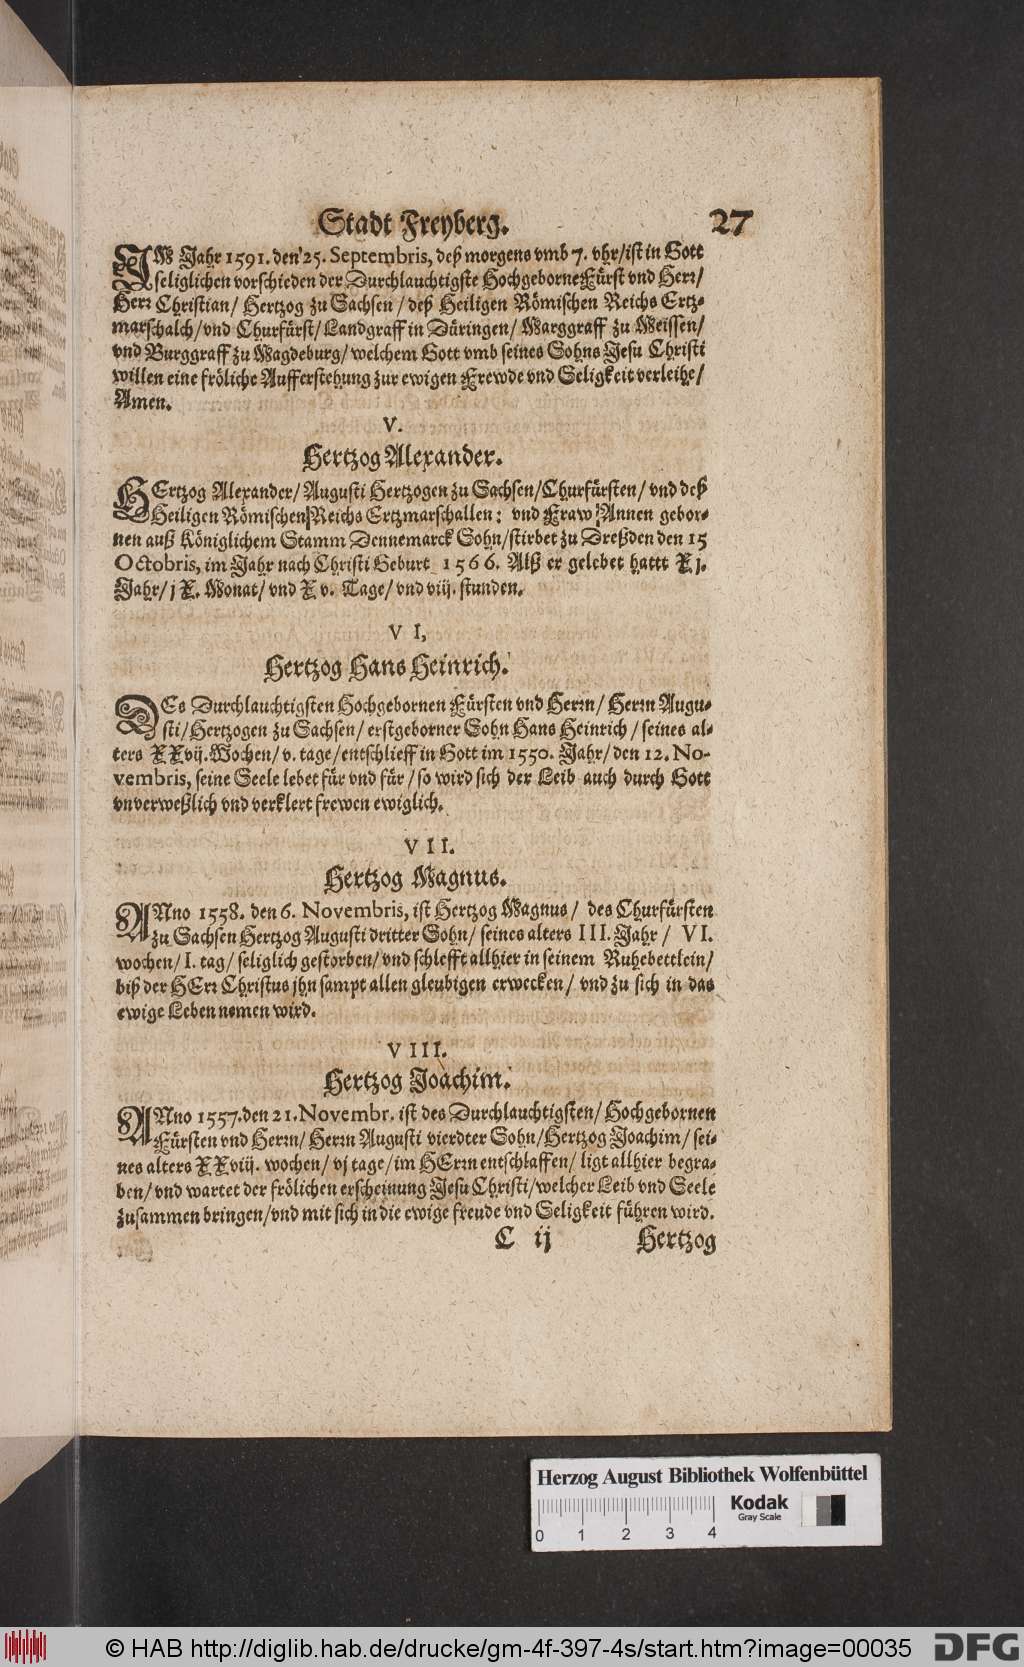 Stadt Freyberg. 27
IM Jahr 1591. den 25. Septembris, deß morgens vmb 7. vhr/ist in Gott
seliglichen vorschieden der Durchlauchtigste Hochgeborne Fürst vnd Herr/
Herr Christian/ Hertzog zu Sachsen/ deß Heiligen Römischen Reichs Ertz-
marschalch/vnd Churfürst/ Landgraff in Düringen/ Marggraff zu Meissen/
vnd Burggraff zu Magdeburg/ welchem Gott vmb seines Sohns Jesu Christi
willen eine fröliche Aufferstehung zur ewigen Frewde vnd Seligkeit verleihe/
Amen.
V.
Hertzog Alexander.
HErtzog Alexander/ Augusti Hertzogen zu Sachsen/Churfürsten/ vnd deß
Heiligen Römischen Reichs Ertzmarschallen: vnd Fraw Annen gebor-
nen auß Königlichem Stamm Dennemarck Sohn/stirbet zu Dreßden den 15
Octobris, im Jahr nach Christi Geburt 1566. Alß er gelebet hattt Xj.
Jahr/ jX. Monat/ vnd Xv. Tage/ vnd viij. stunden.
VI,
Hertzog Hans Heinrich.
DEs Durchlauchtigsten Hochgebornen Fürsten vnd Herrn/ Herrn Augu-
sti/Hertzogen zu Sachsen/ erstgeborner Sohn Hans Heinrich/ seines al-
ters XXvij. Wochen/ v. tage/entschlieff in Gott im 1550. Jahr/ den 12. No-
vembris, seine Seele lebet für vnd für/ so wird sich der Leib auch durch Gott
vnverweßlich vnd verklert frewen ewiglich.
VII.
Hertzog Magnus.
ANno 1558. den 6. Novembris, ist Hertzog Magnus/ des Churfürsten
zu Sachsen Hertzog Augusti dritter Sohn/ seines alters III. Jahr/ VI.
wochen/ I. tag/ seliglich gestorben/ vnd schlefft allhier in seinem Ruhebettlein/
biß der HErr Christus jhn sampt allen gleubigen erwecken/ vnd zu sich in das
ewige Leben nemen wird.
VIII.
Hertzog Joachim.
ANno 1557. den 21. Novembr. ist des Durchlauchtigsten/ Hochgebornen
Fürsten vnd Herrn/ Herrn Augusti vierdter Sohn/Hertzog Joachim/ sei-
nes alters XXviij. wochen/ vj tage/im HErrn entschlaffen/ ligt allhier begra-
ben/ vnd wartet der frölichen erscheinung Jesu Christi/welcher Leib vnd Seele
zusammen bringen/vnd mit sich in die ewige freude vnd Seligkeit führen wird.
C ij Hertzog
Herzog August Bibliothek Wolfenbüttel
Kodak
Gray Scale
0 1 2 3 4
© HAB http://diglib.hab.de/drucke/gm-4f-397-4s/start.htm?image=00035 DFG